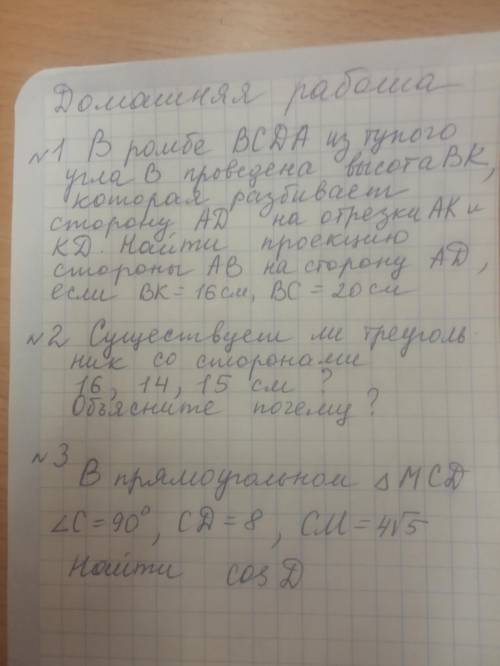 Домашняя работа
№1 В ромбе BCDA из тупого
угла B проведена высота BK,
которая разбивает
сторону AD на отрезки AK и
KD. Найти проекцию
стороны AB на сторону AD,
если BK = 16 см, BC = 20 см
№2 Существует ли треуголь
ник со сторонами
16, 14, 15 см ?
Объясните почему ?
№3
В прямоугольном △MCD
∠C = 90°, CD = 8, CM = 4√5
Найти cos D